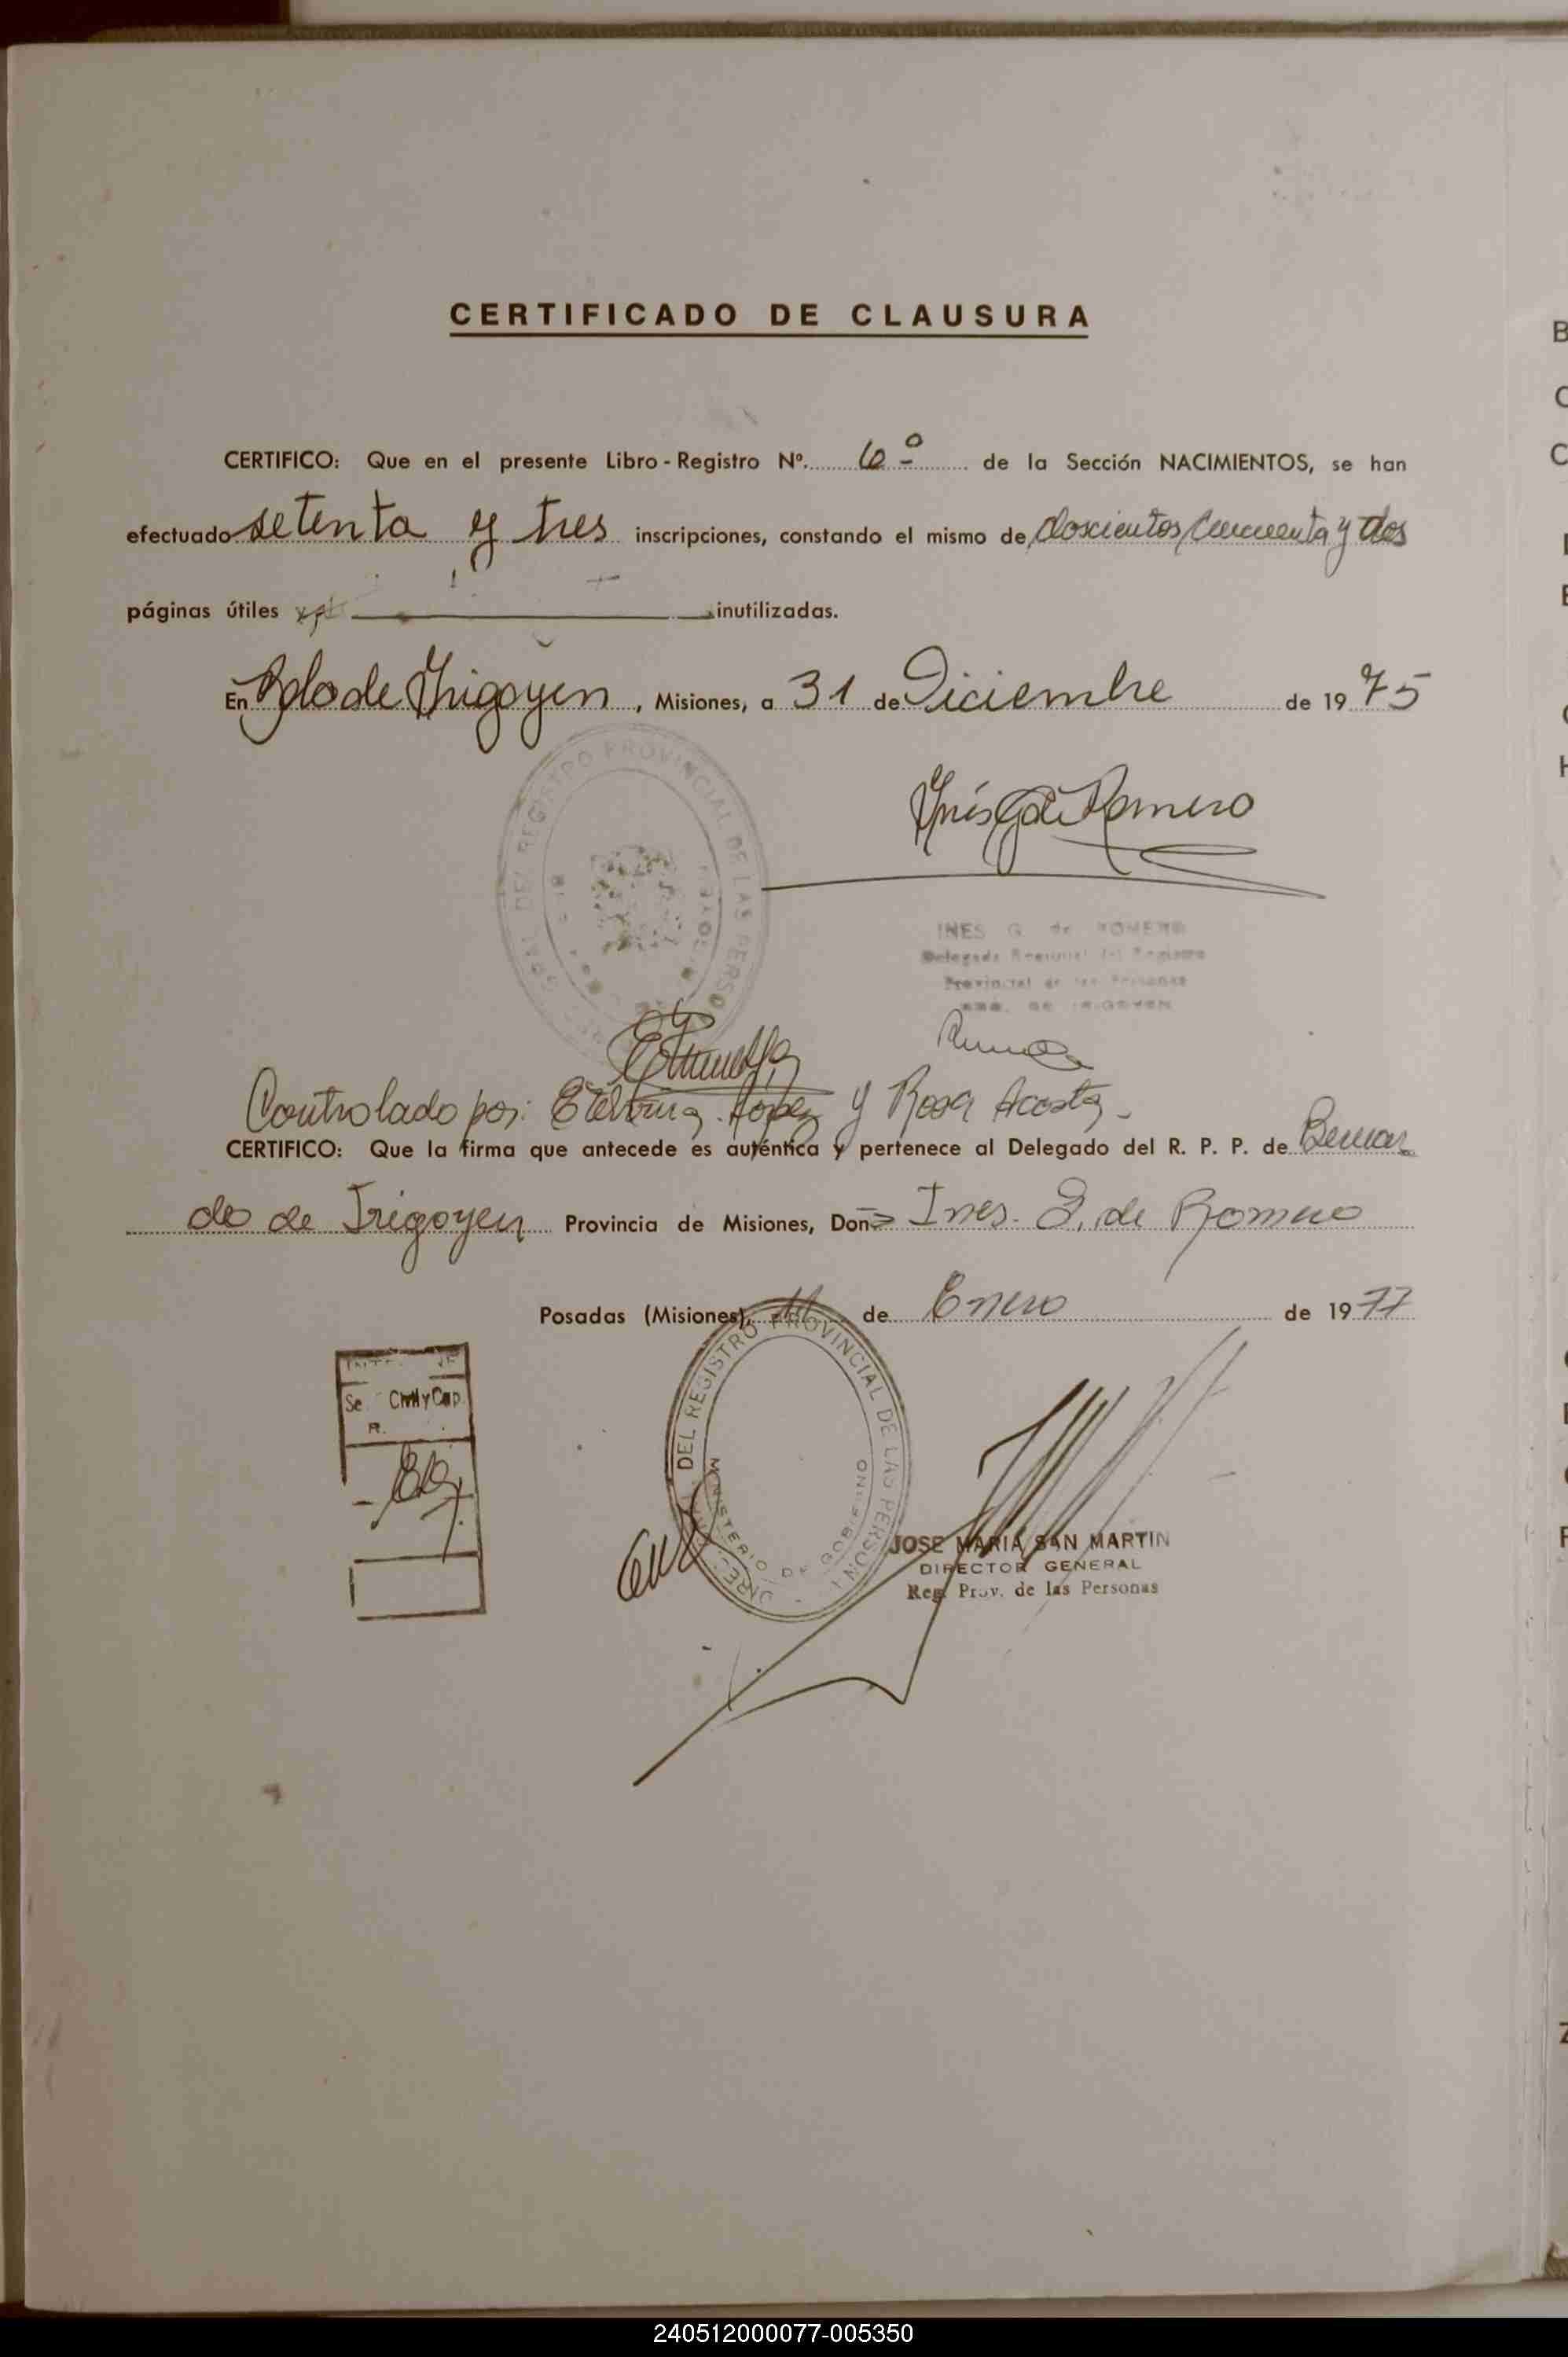 CERTIFICADO DE CLAUSURA
CERTIFICO: Que en el presente Libro-Registro Nº. 6º de la Sección NACIMIENTOS, se han
efectuado setenta y tres inscripciones, constando el mismo de doscientos cincuenta y dos
páginas útiles inutilizadas.
En Bdo de Yrigoyen, Misiones, a 31 de Diciembre de 1975
Ynés G. de Romero
DEL REGISTRO PROVINCIAL DE LAS PERSO
INES G. de ROMERO
Delegada Regional del Registro
Provincial de las Personas
BDO. DE IRIGOYEN
Controlado por: Etelvina López y Rosa Acosta
CERTIFICO: Que la firma que antecede es auténtica y pertenece al Delegado del R. P. P. de Bernar
do de Irigoyen Provincia de Misiones, Don Ines. G. de Romero
Posadas (Misiones), 11 de Enero de 1977
DEL REGISTRO PROVINCIAL DE LAS PERSON
MINISTERIO DE GOBIERNO
Civil y Cap.
JOSE MARIA SAN MARTIN
DIRECTOR GENERAL
Reg. Prov. de las Personas
240512000077-005350